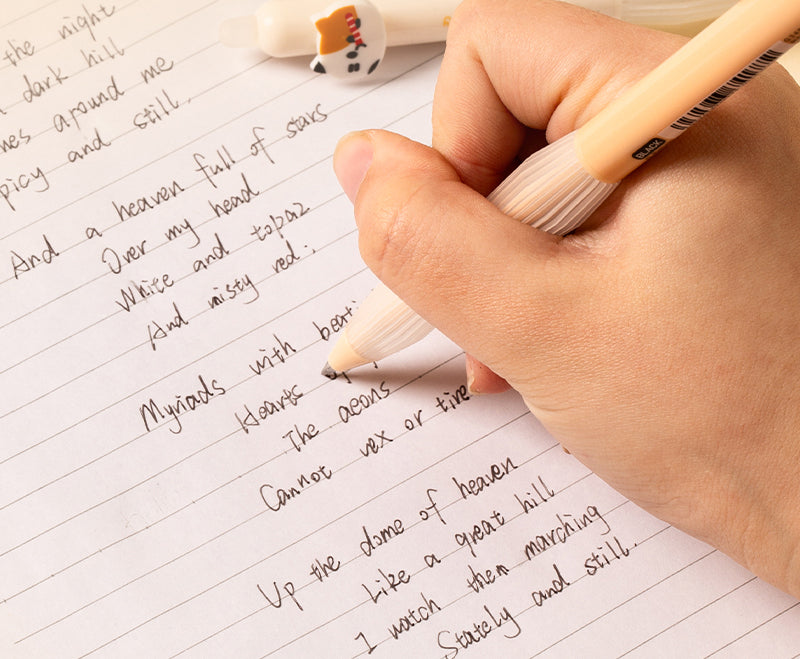 the night
dark hill
nes around me
picy and still.
And a heaven full of stars
Over my head
White and topaz
And misty red:
Myriads with beati
Hearts
The aeons
Cannot vex or tire
Up the dome of heaven
Like a great hill
I watch them marching
Stately and still.
BLACK